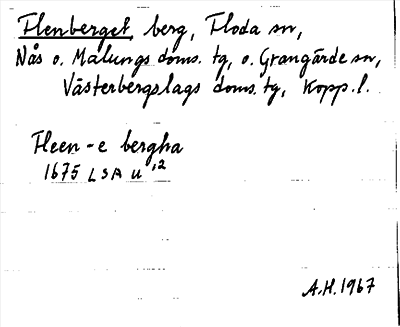 Flenberget, berg, Floda sn,
Nås o. Malungs doms. tg, o. Grangärde sn,
Västerbergslags doms. tg, Kopp. l.
Fleen-e bergha
1675 LSA U 12
A.H. 1967